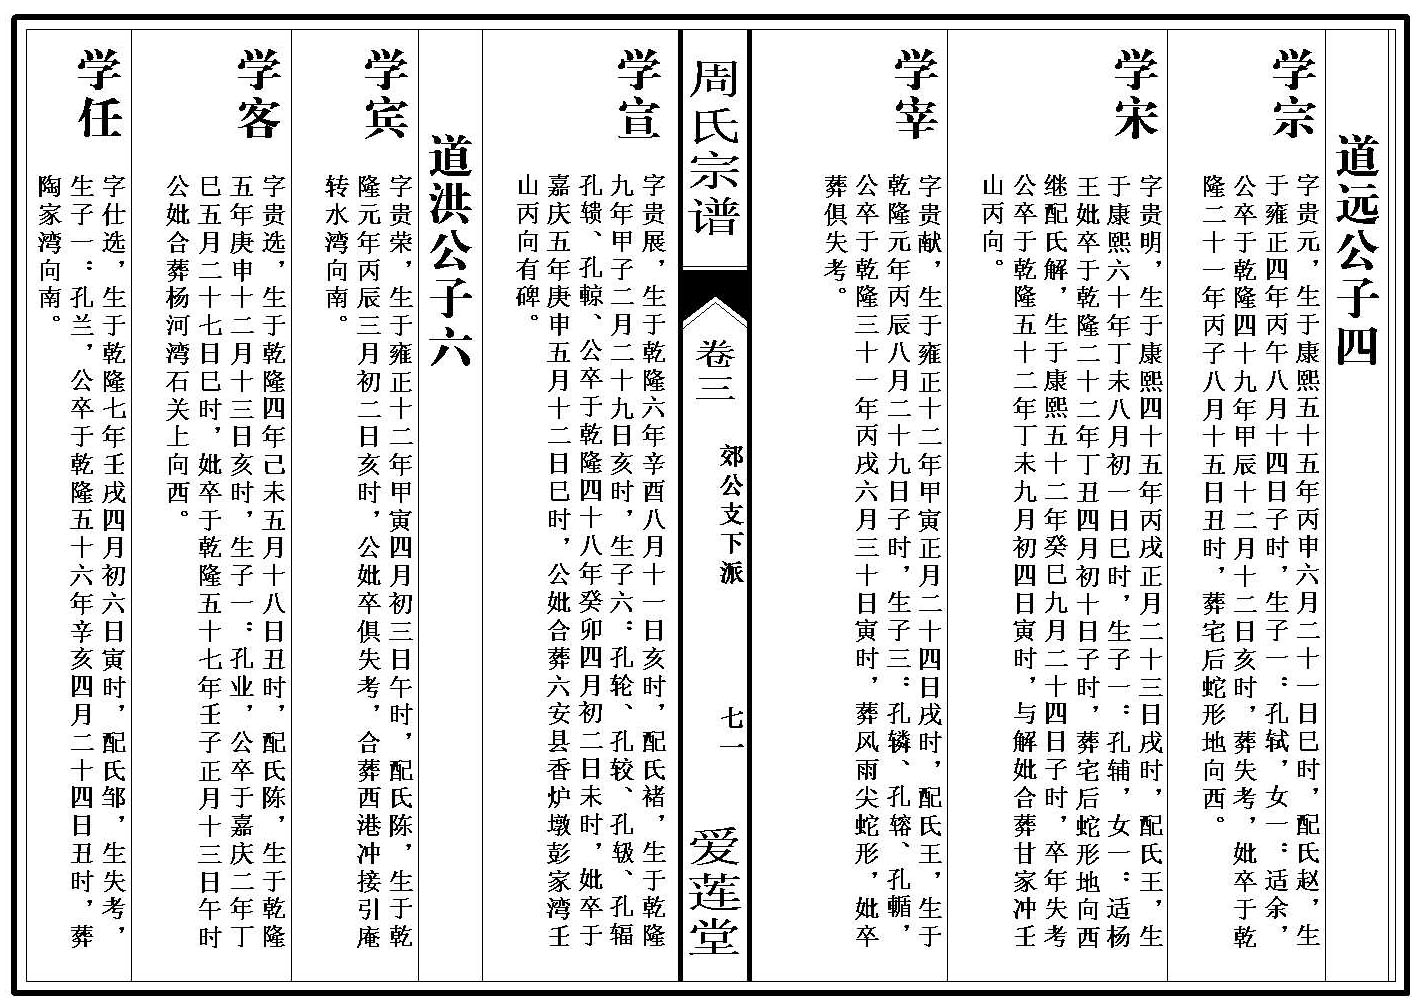 道远公子四
学宗
字贵元，生于康熙五十五年丙申六月二十一日巳时，配氏赵，生
于雍正四年丙午八月十四日子时，生子一：孔轼，女一：适余，
公卒于乾隆四十九年甲辰十二月十二日亥时，葬失考，妣卒于乾
隆二十一年丙子八月十五日丑时，葬宅后蛇形地向西。
学宋
字贵明，生于康熙四十五年丙戌正月二十三日戌时，配氏王，生
于康熙六十年丁未八月初一日巳时，生子一：孔辅，女一：适杨
王妣卒于乾隆二十二年丁丑四月初十日子时，葬宅后蛇形地向西
继配氏解，生于康熙五十二年癸巳九月二十四日子时，卒年失考
公卒于乾隆五十二年丁未九月初四日寅时，与解妣合葬甘家冲壬
山丙向。
学宰
字贵献，生于雍正十二年甲寅正月二十四日戌时，配氏王，生于
乾隆元年丙辰八月二十九日子时，生子三：孔辚、孔镕、孔輴，
公卒于乾隆三十一年丙戌六月三十日寅时，葬风雨尖蛇形，妣卒
葬俱失考。
周氏宗谱
卷三
郊公支下派
七一
爱莲堂
学宣
字贵展，生于乾隆六年辛酉八月十一日亥时，配氏褚，生于乾隆
九年甲子二月二十九日亥时，生子六：孔轮、孔较、孔轵、孔辐
孔轒、孔輬、公卒于乾隆四十八年癸卯四月初二日未时，妣卒于
嘉庆五年庚申五月十二日巳时，公妣合葬六安县香炉墩彭家湾壬
山丙向有碑。
道洪公子六
学宾
字贵荣，生于雍正十二年甲寅四月初三日午时，配氏陈，生于乾
隆元年丙辰三月初二日亥时，公妣卒俱失考，合葬西港冲接引庵
转水湾向南。
学客
字贵选，生于乾隆四年己未五月十八日丑时，配氏陈，生于乾隆
五年庚申十二月十三日亥时，生子一：孔业，公卒于嘉庆二年丁
巳五月二十七日巳时，妣卒于乾隆五十七年壬子正月十三日午时
公妣合葬杨河湾石关上向西。
学任
字仕选，生于乾隆七年壬戌四月初六日寅时，配氏邹，生失考，
生子一：孔兰，公卒于乾隆五十六年辛亥四月二十四日丑时，葬
陶家湾向南。